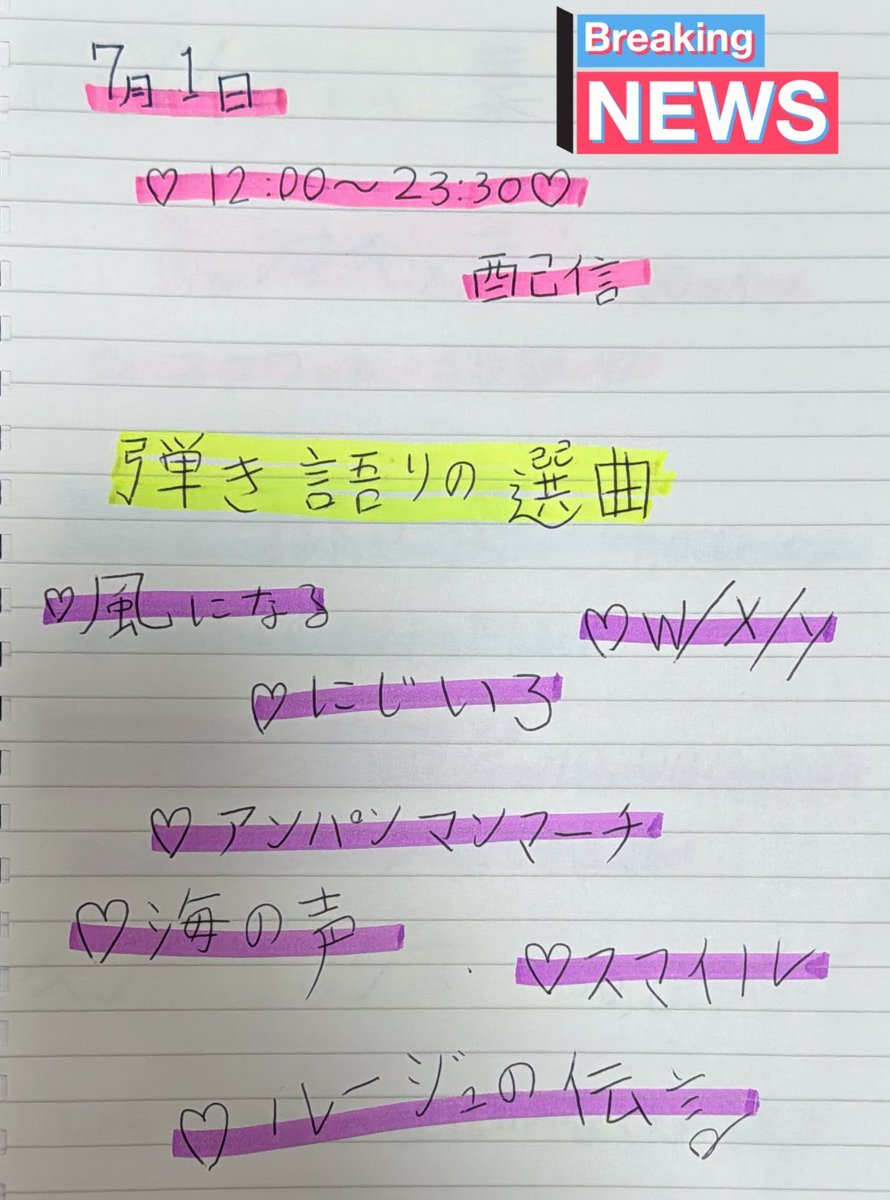 Breaking
NEWS
7月1日
♡12:00～23:30♡
配信
弾き語りの選曲
♡風になる
♡W/X/Y
♡にじいろ
♡アンパンマンマーチ
♡海の声
♡スマイル
♡ルージュの伝言